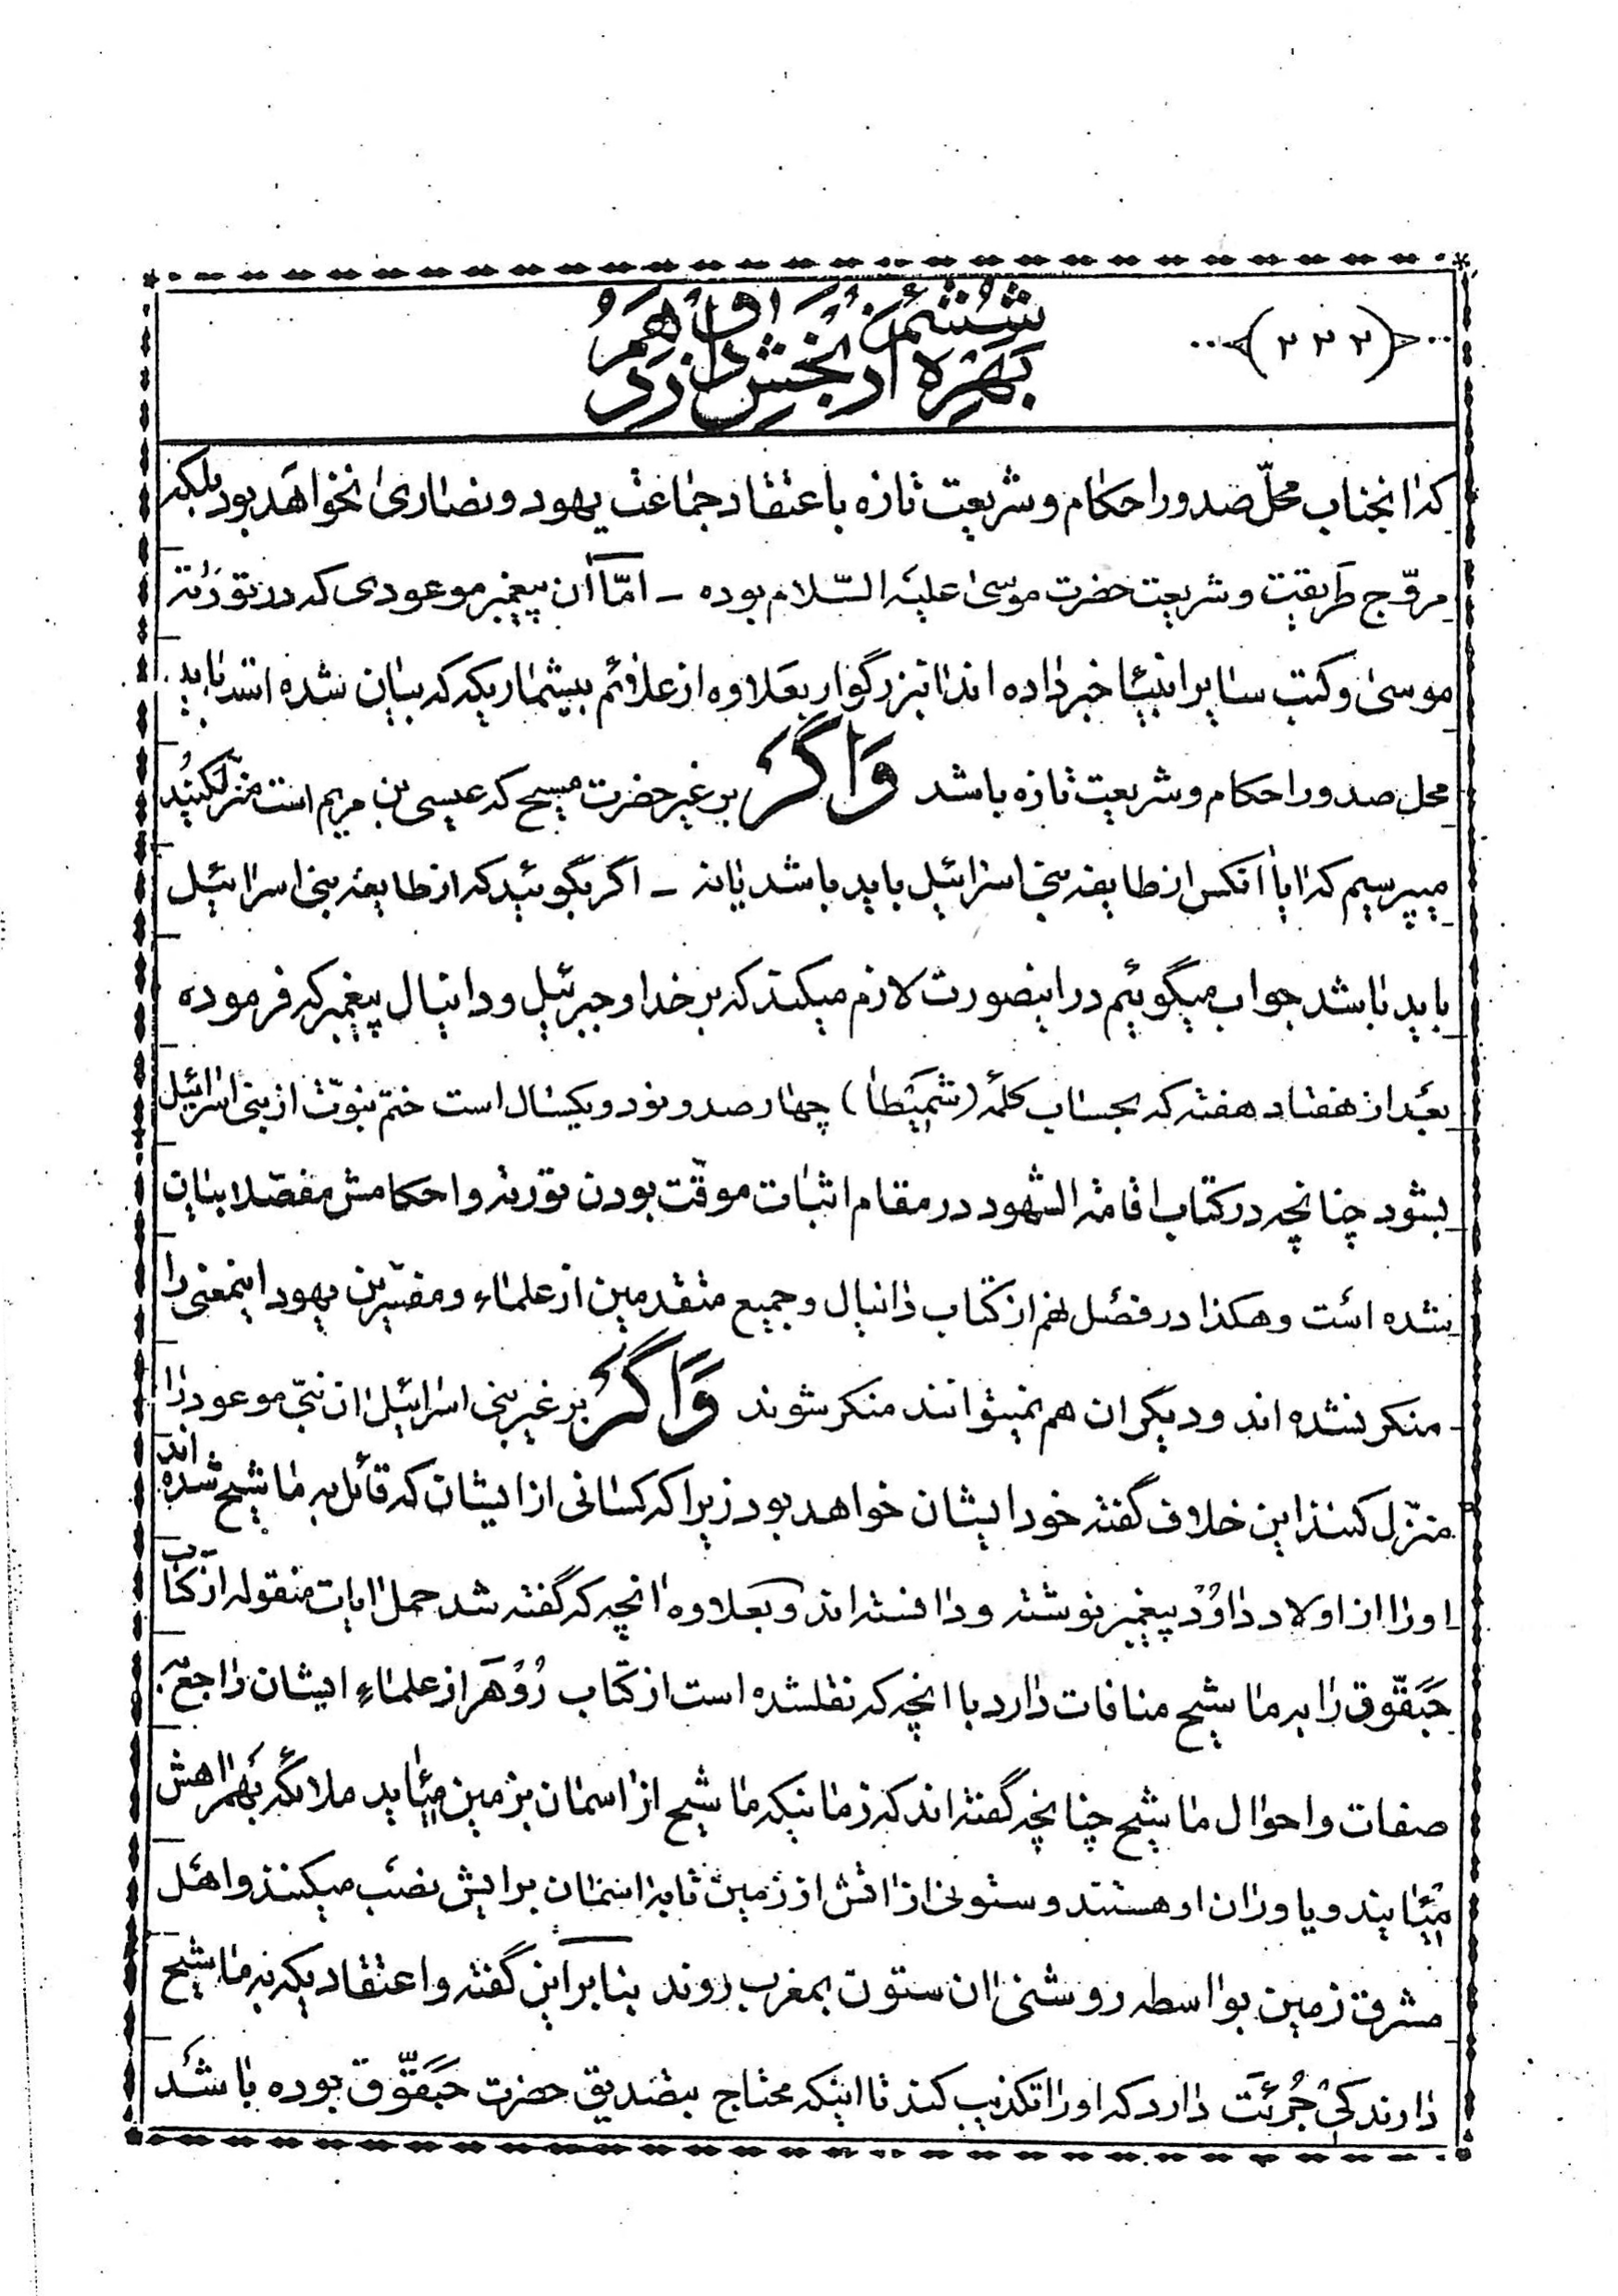 (۲۲۲)
ششمین بهره از بخش دوازدهم
که انجناب محلّ صدور احکام و شریعت تازه باعتقاد جماعت یهود و نصاریٰ نخواهد بود بلکه
مروّج طریقت و شریعت حضرت موسیٰ علیه السّلام بوده ـ امّا آن پیغمبر موعودی که در توریة
موسیٰ و کتب سایر انبیٰا خبر داده اند انبزرگوار بعلاوه از علائم بیشماریکه که بیان شده است باید
محل صدور احکام و شریعت تازه باشد وَاگر بر غیر حضرت مسیح که عیسی بن مریم است منزّل کنید
میپرسیم که ایا انکس از طایفه بنی اسرائیل باید باشد یا نه ـ اگر بگوئید که از طایفه بنی اسرائیل
باید باشد جواب میگوئیم در اینصورت لازم میکند که بر خدا و جبرئیل و دانیال پیغمبر که فرموده
بعد از هفتاد هفته که بحساب کلمهٔ (شمیطا) چهار صد و نود و یکسال است ختم نبوّت از بنی اسرائیل
بشود چنانچه در کتاب اقامة الشهود در مقام اثبات موقّت بودن توریة و احکامش مفصّلا بیان
شده است و هکذا در فصل نهم از کتاب دانیال و جمیع متقدمین از علماء و مفسّرین یهود اینمعنی را
منکر نشده اند و دیگران هم نمیتوانند منکر شوند وَاگر بر غیر بنی اسرائیل ان نبّی موعود را
منزّل کنند این خلاف گفته خود ایشان خواهد بود زیرا که کسانی از ایشان که قائل به ماشیح شده اند
او را از اولاد داوُد پیغمبر نوشته و دانسته اند و بعلاوه انچه که گفته شد حمل ایات منقوله از کتاب
حَبَقّوق را به ماشیح منافات دارد با انچه که نقلشده است از کتاب زُوْهَر از علماءِ ایشان راجع به
صفات و احوال ماشیح چنانچه گفته اند که زمانیکه ماشیح از اسمان بزمین میٔاید ملائکه بهمراهش
میٔایند و یاوران او هستند و ستونی از اتش از زمین تا به اسمان برایش نصب میکنند و اهل
مشرق زمین بواسطه روشنی ان ستون بمغرب روند بنابراین گفته و اعتقادیکه به ماشیح
دارند کی جُرئَت دارد که او را تکذیب کند تا اینکه محتاج بتصدیق حضرت حَبَقّوق بوده باشد